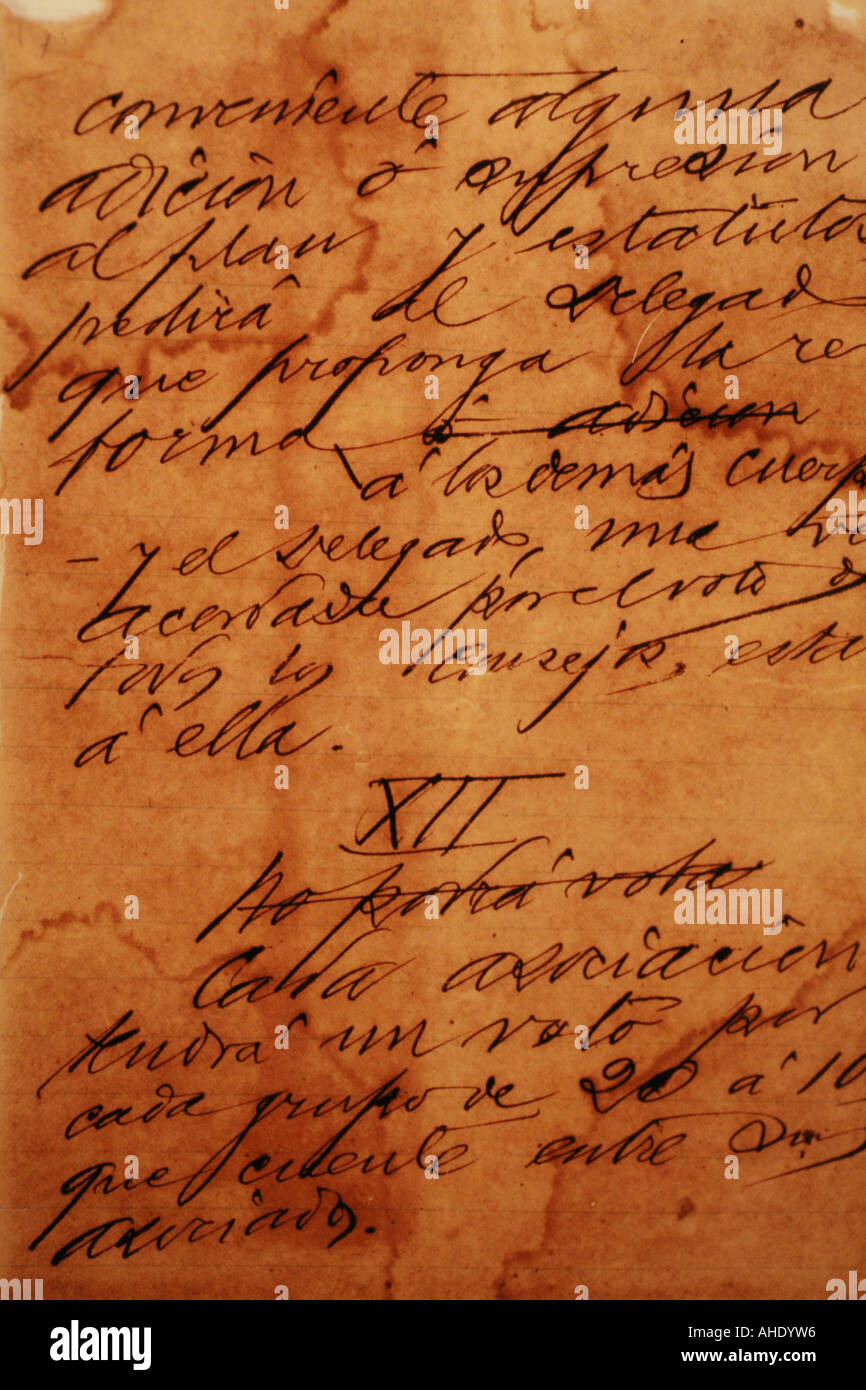 conveniente alguna
adición ó supresión
al plan y estatutos,
pedirá al Delegad
que proponga la re
forma ó adición
á los demás cuerp
– y el Delegado, una v
acordada por el voto d
todos los Consejos, esta
á ella.
XII
No podrá vota
Cada asociación
tendrá un voto por
cada grupo de 20 á 10
que cuente entre sus
asociados.
alamy
Image ID: AHDYW6
www.alamy.com